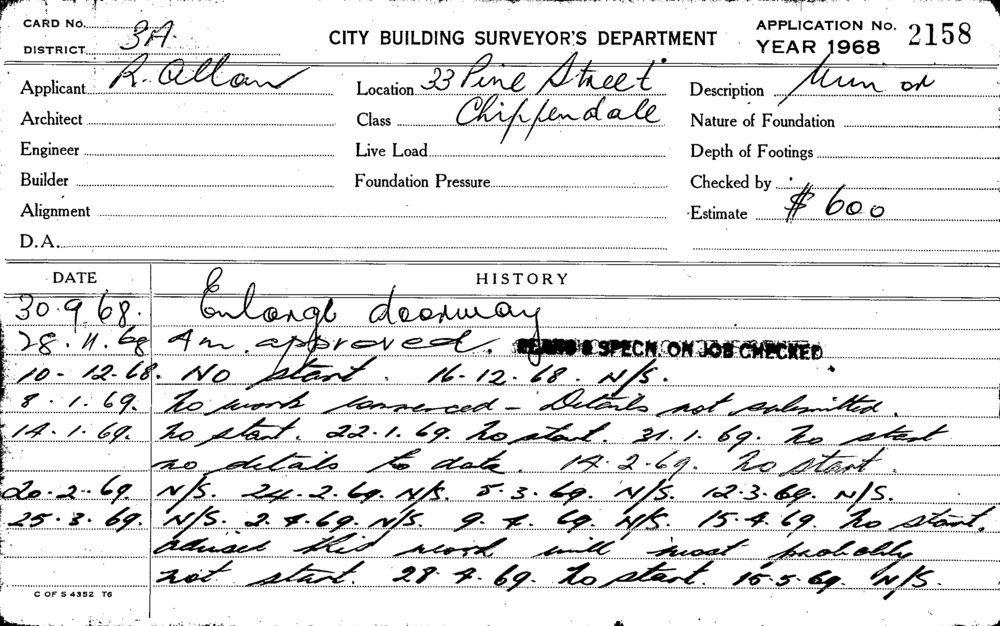 CARD No.
DISTRICT 3A.
CITY BUILDING SURVEYOR'S DEPARTMENT
APPLICATION No. 2158
YEAR 1968
Applicant R. Allan Location 33 Pine Street Description
Architect Class Chippendale Nature of Foundation
Engineer Live Load Depth of Footings
Builder Foundation Pressure Checked by
Alignment Estimate $ 600
D.A.
DATE HISTORY
30.9.68. Enlarge doorway
28.11.68 Am. approved. SPECN. ON JOB CHECKED
10-12-68. No start. 16-12-68. N/S.
8.1.69. No work commenced - Details not submitted.
14.1.69. No start. 22.1.69. No start. 31.1.69. No start
no details to date. 14.2.69. No start.
20.2.69. N/S. 24.2.69. N/S. 5.3.69. N/S. 12.3.69. N/S.
25.3.69. N/S. 2.4.69. N/S. 9.4.69. N/S. 15.4.69. No start,
advised this work will most probably
not start. 28.4.69. No start. 15.5.69. N/S.
C OF S 4352 T6